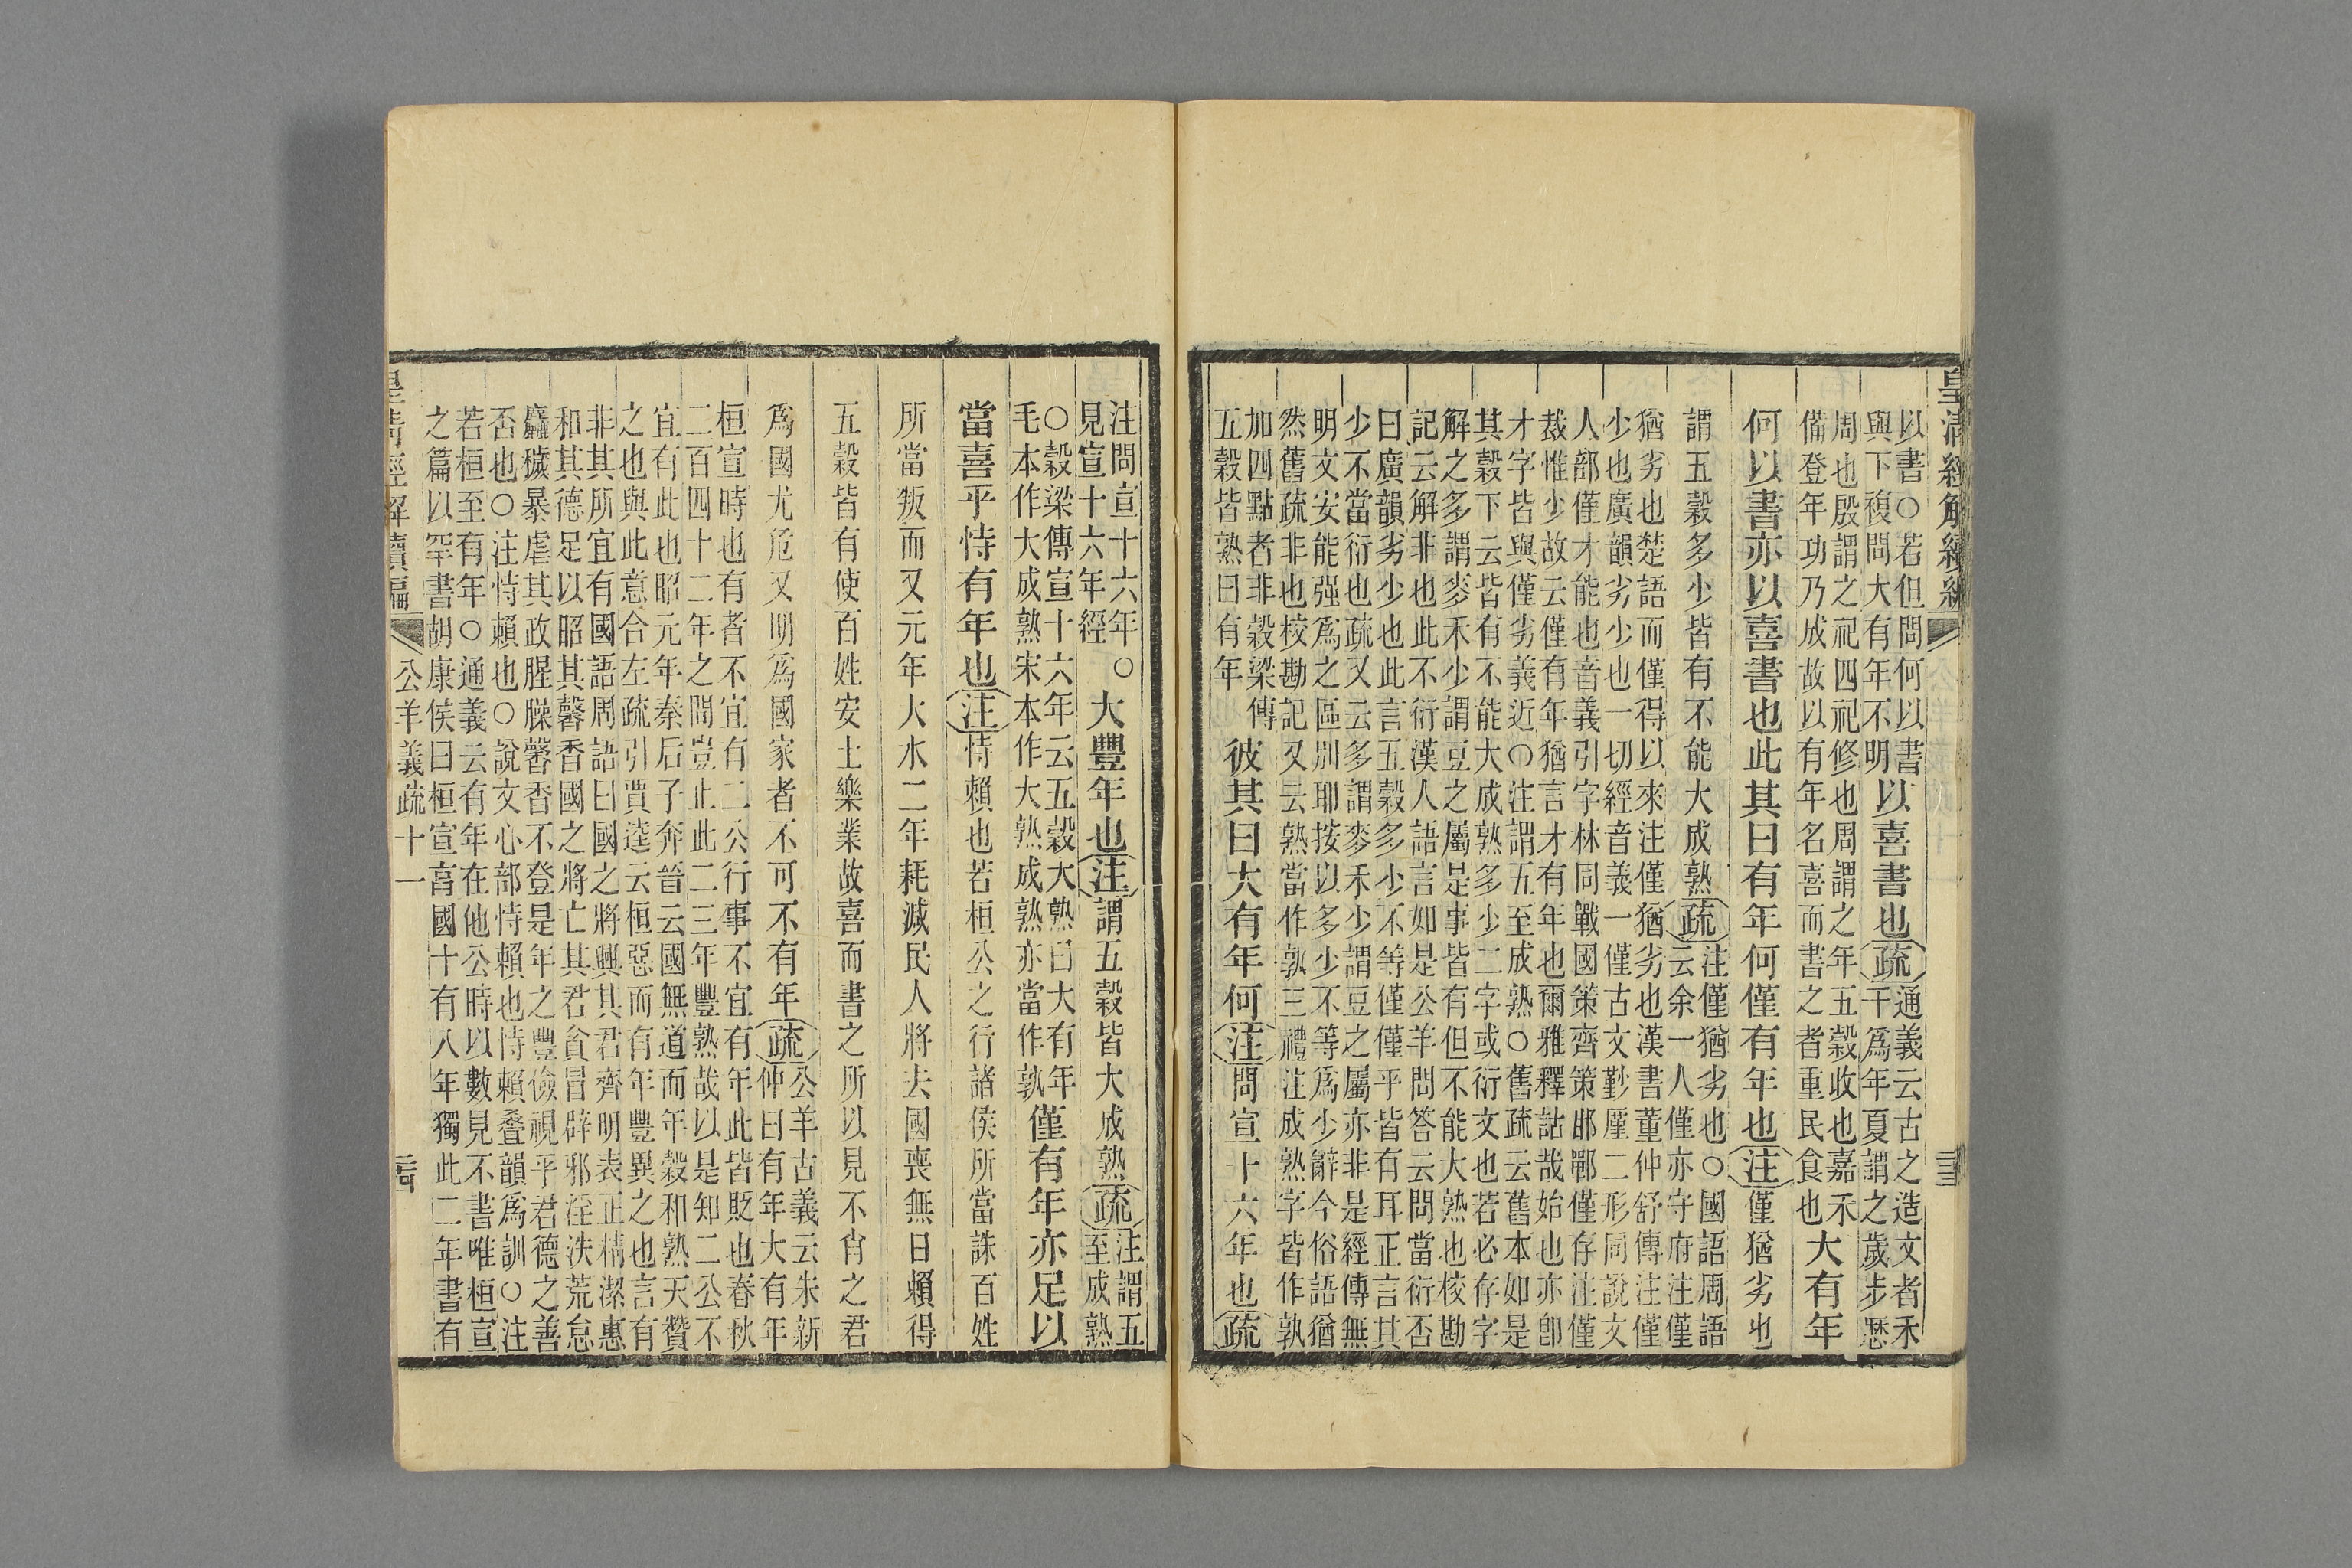 皇清經解續編
以書○若但問何以書
與下複問大有年不明
以喜書也疏
通義云古之造文者禾
千爲年夏謂之歲步厯
周也殷謂之祀四祀修也周謂之年五穀收也嘉禾
備登年功乃成故以有年名喜而書之者重民食也
大有年
何以書亦以喜書也此其曰有年何僅有年也注僅猶劣也
謂五穀多少皆有不能大成熟疏
注僅猶劣也○國語周語
云余一人僅亦守府注僅
猶劣也楚語而僅得以來注僅猶劣也漢書董仲舒傳注僅
少也廣韻劣少也一切經音義一僅古文厪二形同說文
人部僅才能也音義引字林同戰國策齊策邯鄲僅存注僅
裁惟少故云僅有年猶言才有年也爾雅釋詁哉始也亦卽
才字皆與僅劣義近○注謂五至成熟○舊疏云舊本如是
其穀下云皆有不能大成熟多少二字或衍文也若必存字
解之多謂麥禾少謂豆之屬是事皆有但不能大熟也校勘
記云解非也此不衍漢人語言如是公羊問答云問當衍否
曰廣韻劣少也此言五穀多少不等僅僅乎皆有耳正言其
少不當衍也疏又云多謂麥禾少謂豆之屬亦非是經傳無
明文安能强爲之區別耶按以多少不等爲少辭今俗語猶
然舊疏非也校勘記又云熟當作孰三禮注成熟字皆作孰
加四點者非穀梁傳
五穀皆熟曰有年
彼其曰大有年何注問宣十六年也疏
注問宣十六年○
見宣十六年經
大豐年也注謂五穀皆大成熟疏
注謂五
至成熟
○穀梁傳宣十六年云五穀大熟曰大有年
毛本作大成熟宋本作大熟成熟亦當作孰
僅有年亦足以
當喜乎恃有年也注恃賴也若桓公之行諸侯所當誅百姓
所當叛而又元年大水二年耗減民人將去國喪無日賴得
五穀皆有使百姓安土樂業故喜而書之所以見不肖之君
爲國尤危又明爲國家者不可不有年疏
公羊古義云朱新
仲曰有年大有年
桓宣時也有者不宜有二公行事不宜有年此皆貶也春秋
二百四十二年之間豈止此二三年豐熟哉以是知二公不
宜有此也昭元年秦后子奔晉云國無道而年穀和熟天贊
之也與此意合左疏引賈逵云桓惡而有年豐異之也言有
非其所宜有國語周語曰國之將興其君齊明衷正精潔惠
和其德足以昭其馨香國之將亡其君貪冒辟邪淫泆荒怠
麤穢暴虐其政腥臊馨香不登是年之豐儉視乎君德之善
否也○注恃賴也○說文心部恃賴也恃賴叠韻爲訓○注
若桓至有年○通義云有年在他公時以數見不書唯桓宣
之篇以罕書胡康侯曰桓宣享國十有八年獨此二年書有
皇清經解續編
公羊義疏十一